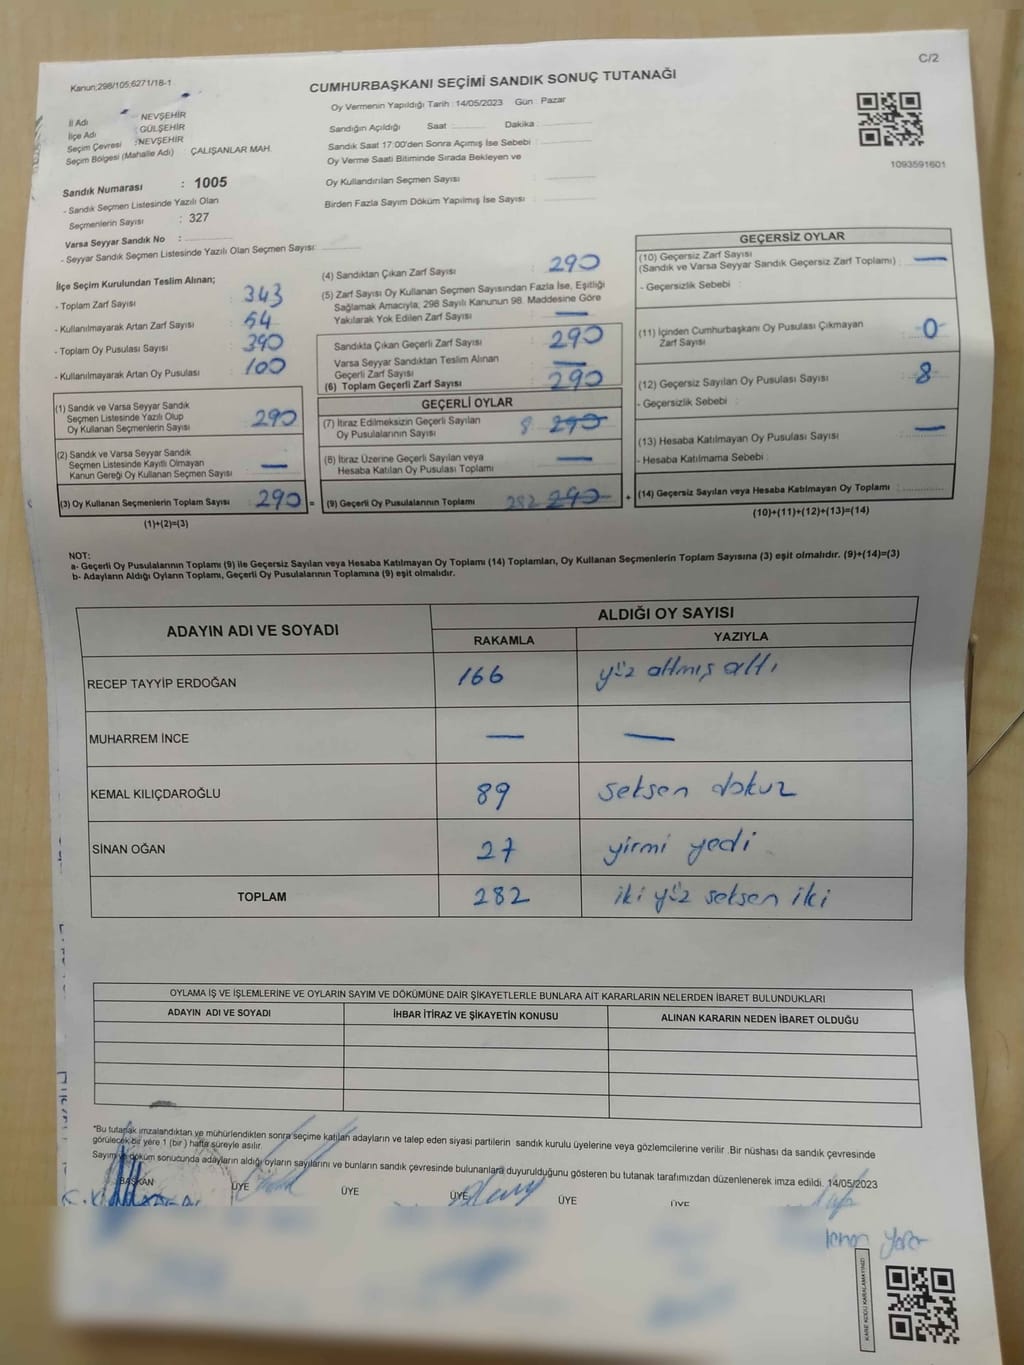 C/2
Kanun;298/105;6271/18-1
CUMHURBAŞKANI SEÇİMİ SANDIK SONUÇ TUTANAĞI
Oy Vermenin Yapıldığı Tarih : 14/05/2023 Gün : Pazar
İl Adı : NEVŞEHİR
İlçe Adı : GÜLŞEHİR
Seçim Çevresi : NEVŞEHİR
Seçim Bölgesi (Mahalle Adı) : ÇALIŞANLAR MAH.
Sandığın Açıldığı Saat : Dakika :
Sandık Saat 17:00'den Sonra Açımış İse Sebebi :
Oy Verme Saati Bitiminde Sırada Bekleyen ve
Oy Kullandırılan Seçmen Sayısı :
Birden Fazla Sayım Döküm Yapılmış İse Sayısı :
1093591601
Sandık Numarası : 1005
- Sandık Seçmen Listesinde Yazılı Olan
Seçmenlerin Sayısı : 327
Varsa Seyyar Sandık No :
- Seyyar Sandık Seçmen Listesinde Yazılı Olan Seçmen Sayısı:
İlçe Seçim Kurulundan Teslim Alınan;
- Toplam Zarf Sayısı : 343
- Kullanılmayarak Artan Zarf Sayısı : 54
- Toplam Oy Pusulası Sayısı : 390
- Kullanılmayarak Artan Oy Pusulası : 100
(1) Sandık ve Varsa Seyyar Sandık
Seçmen Listesinde Yazılı Olup
Oy Kullanan Seçmenlerin Sayısı : 290
(2) Sandık ve Varsa Seyyar Sandık
Seçmen Listesinde Kayıtlı Olmayan
Kanun Gereği Oy Kullanan Seçmen Sayısı : —
(3) Oy Kullanan Seçmenlerin Toplam Sayısı : 290 =
(1)+(2)=(3)
(4) Sandıktan Çıkan Zarf Sayısı : 290
(5) Zarf Sayısı Oy Kullanan Seçmen Sayısından Fazla İse, Eşitliği
Sağlamak Amacıyla, 298 Sayılı Kanunun 98. Maddesine Göre
Yakılarak Yok Edilen Zarf Sayısı : —
Sandıkta Çıkan Geçerli Zarf Sayısı : 290
Varsa Seyyar Sandıktan Teslim Alınan
Geçerli Zarf Sayısı : —
(6) Toplam Geçerli Zarf Sayısı : 290
GEÇERLİ OYLAR
(7) İtiraz Edilmeksizin Geçerli Sayılan
Oy Pusulalarının Sayısı : 8 290
(8) İtiraz Üzerine Geçerli Sayılan veya
Hesaba Katılan Oy Pusulası Toplamı : —
(9) Geçerli Oy Pusulalarının Toplamı : 282 290 +
GEÇERSİZ OYLAR
(10) Geçersiz Zarf Sayısı
(Sandık ve Varsa Seyyar Sandık Geçersiz Zarf Toplamı) : —
- Geçersizlik Sebebi :
(11) İçinden Cumhurbaşkanı Oy Pusulası Çıkmayan
Zarf Sayısı : 0
(12) Geçersiz Sayılan Oy Pusulası Sayısı : 8
- Geçersizlik Sebebi :
(13) Hesaba Katılmayan Oy Pusulası Sayısı : —
- Hesaba Katılmama Sebebi :
(14) Geçersiz Sayılan veya Hesaba Katılmayan Oy Toplamı :
(10)+(11)+(12)+(13)=(14)
NOT:
a- Geçerli Oy Pusulalarının Toplamı (9) ile Geçersiz Sayılan veya Hesaba Katılmayan Oy Toplamı (14) Toplamları, Oy Kullanan Seçmenlerin Toplam Sayısına (3) eşit olmalıdır. (9)+(14)=(3)
b- Adayların Aldığı Oyların Toplamı, Geçerli Oy Pusulalarının Toplamına (9) eşit olmalıdır.
ADAYIN ADI VE SOYADI ALDIĞI OY SAYISI
RAKAMLA YAZIYLA
RECEP TAYYİP ERDOĞAN 166 yüz altmış altı
MUHARREM İNCE — —
KEMAL KILIÇDAROĞLU 89 seksen dokuz
SİNAN OĞAN 27 yirmi yedi
TOPLAM 282 iki yüz seksen iki
OYLAMA İŞ VE İŞLEMLERİNE VE OYLARIN SAYIM VE DÖKÜMÜNE DAİR ŞİKAYETLERLE BUNLARA AİT KARARLARIN NELERDEN İBARET BULUNDUKLARI
ADAYIN ADI VE SOYADI İHBAR İTİRAZ VE ŞİKAYETİN KONUSU ALINAN KARARIN NEDEN İBARET OLDUĞU
*Bu tutanak imzalandıktan ve mühürlendikten sonra seçime katılan adayların ve talep eden siyasi partilerin sandık kurulu üyelerine veya gözlemcilerine verilir. Bir nüshası da sandık çevresinde
görülecek bir yere 1 (bir) hafta süreyle asılır.
Sayım ve döküm sonucunda adayların aldığı oyların sayılarını ve bunların sandık çevresinde bulunanlara duyurulduğunu gösteren bu tutanak tarafımızdan düzenlenerek imza edildi. 14/05/2023
BAŞKAN ÜYE ÜYE ÜYE ÜYE ÜYE
KARE KODU KARALAMAYINIZ!